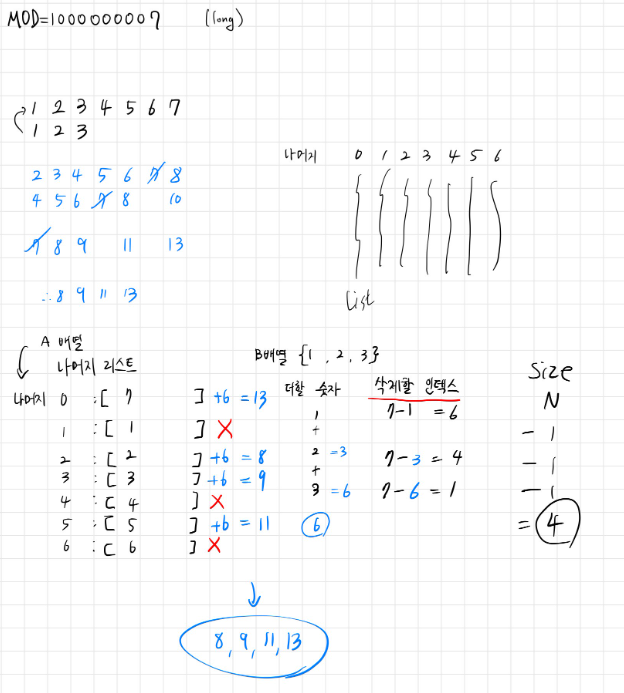 MOD=1000000007 (long)
1 2 3 4 5 6 7
1 2 3
나머지 0 1 2 3 4 5 6
2 3 4 5 6 7 8
4 5 6 7 8 10
7 8 9 11 13
∴ 8 9 11 13
List
A 배열
나머지 리스트
B배열 {1, 2, 3}
더할 숫자 삭제할 인덱스 Size
나머지 0 : [ 7 ] +6 = 13 1 7-1 = 6 N
1 : [ 1 ] X + - 1
2 : [ 2 ] +6 = 8 2 =3 7-3 = 4 - 1
3 : [ 3 ] +6 = 9 +
4 : [ 4 ] X 3 =6 7-6 = 1 - 1
5 : [ 5 ] +6 = 11 6 = 4
6 : [ 6 ] X
8, 9, 11, 13